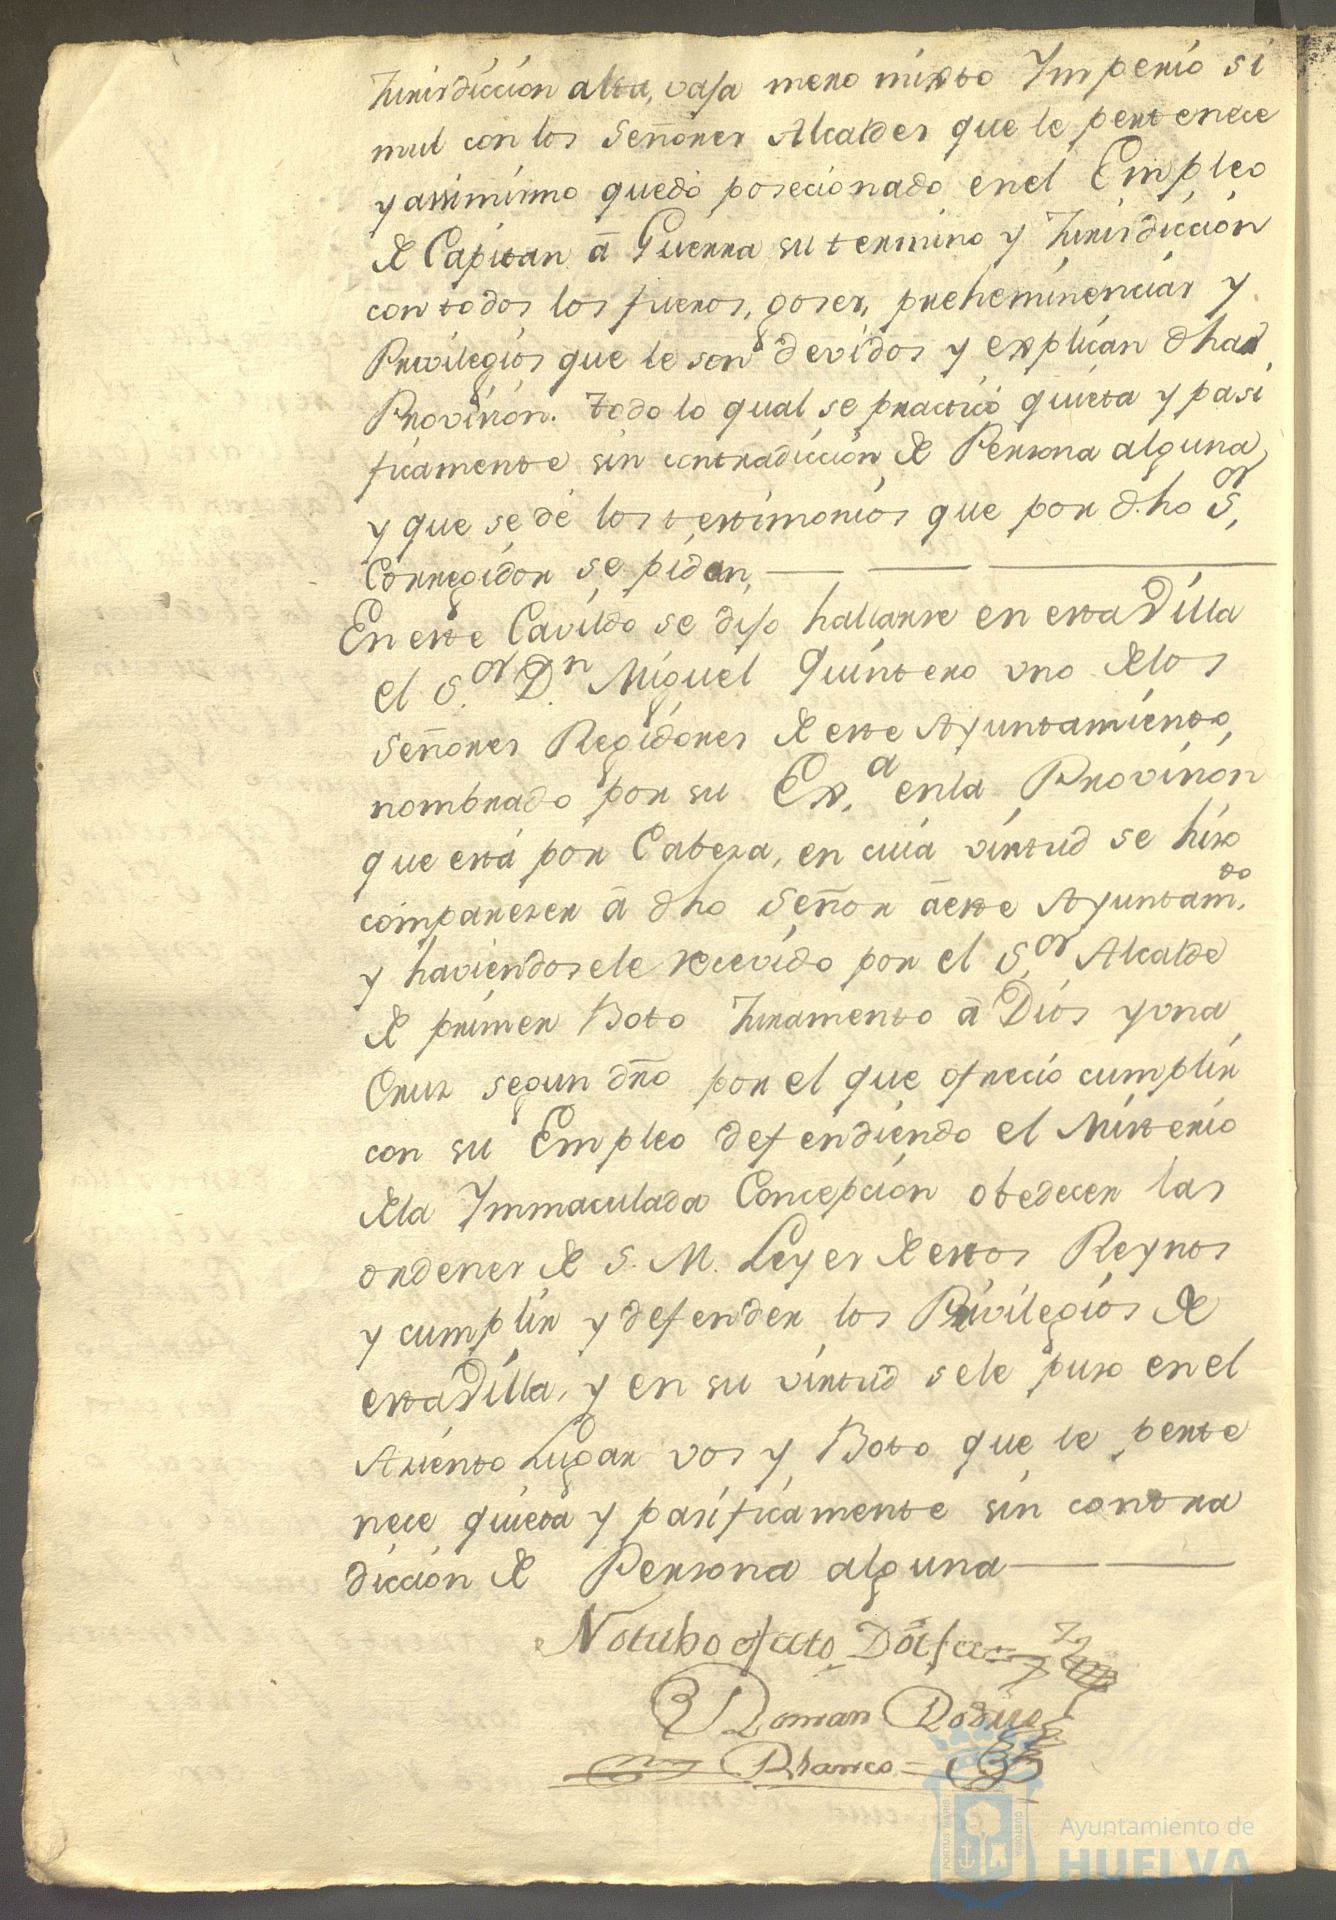 Jurisdiccion alta, vaja mero mixto Ymperio si
mul con los Señores Alcaldes que le pertenece
y assimismo quedó posecionado en el Empleo
de Capitan â Guerra su termino y Jurisdiccion
con todos los fueros, goses, preheminencias y
Privilegios que le son devidos y explican dhas
Provision. Todo lo qual se practicó quieta y pasi
ficamente sin contradiccion de Persona alguna
y que se dé los testimonios que por dho S.or
Corregidor se pidan,
En este Cavildo se dijo hallarse en esta Villa
el S.or D.n Miguel Quintero uno de los
Señores Regidores de este Ayuntamiento,
nombrado por su Ex.a en la Provision
que está por Cabeza, en cuia virtud se hizo
comparezer â dho Señor â este Ayuntam.to
y haviendosele recevido por el S.or Alcalde
de primer Boto Juramento â Dios y una
Cruz segun dro por el que ofrecio cumplir
con su Empleo defendiendo el Misterio
de la Ymmaculada Concepcion obedecer las
ordenes de S. M. Leyes de estos Reynos
y cumplir y defender los Privilegios de
esta Villa, y en su virtud se le puso en el
Asiento Lugar vos y Boto que le perte
nece quieta y pasificamente sin contra
diccion de Persona alguna
Notubo efecto Doi fee
Roman Rodrigz
Blanco
Ayuntamiento de
HUELVA